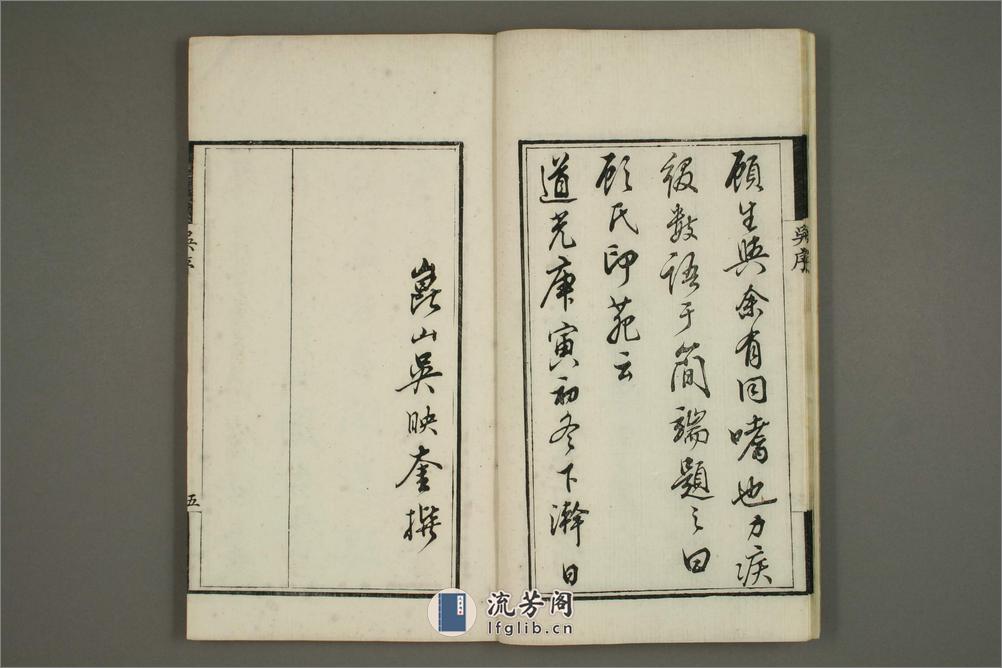 顾生與余有同嗜也力疾
綴数語于簡端題之曰
顾氏印苑云
道光庚寅初冬下澣日
崑山吴映奎撰
吳序
五
流芳阁
lfglib.cn